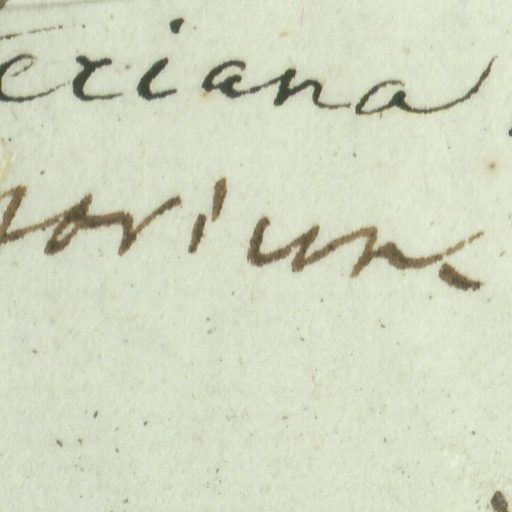 eriana
orium